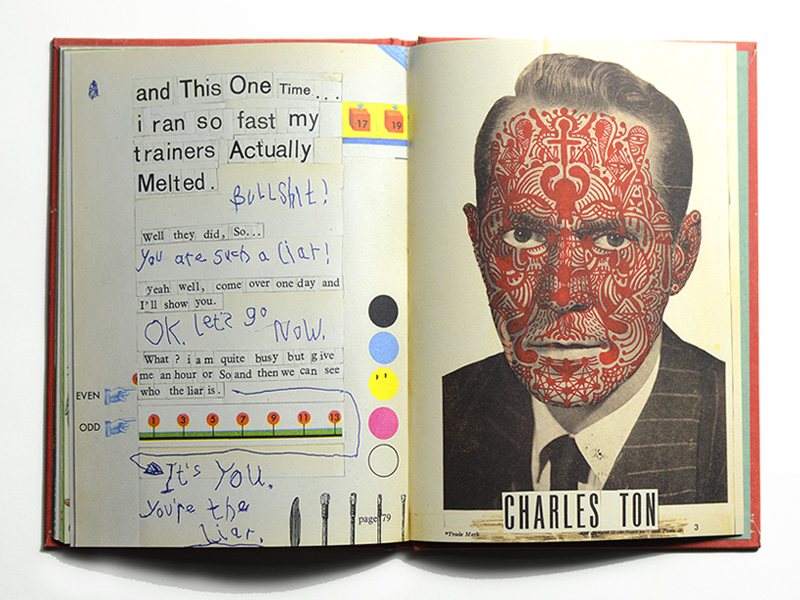 and This One Time...
i ran so fast my
trainers Actually
Melted.
BullShit!
Well they did, So...
You are such a liar!
yeah well, come over one day and
I'll show you.
OK. Let's go Now.
What? i am quite busy but give
me an hour or So and then we can see
who the liar is.
EVEN
ODD
1 3 5 7 9 11 13
It's You.
You're the
liar.
page 79
17 19
CHARLES TON
*Trade Mark
3